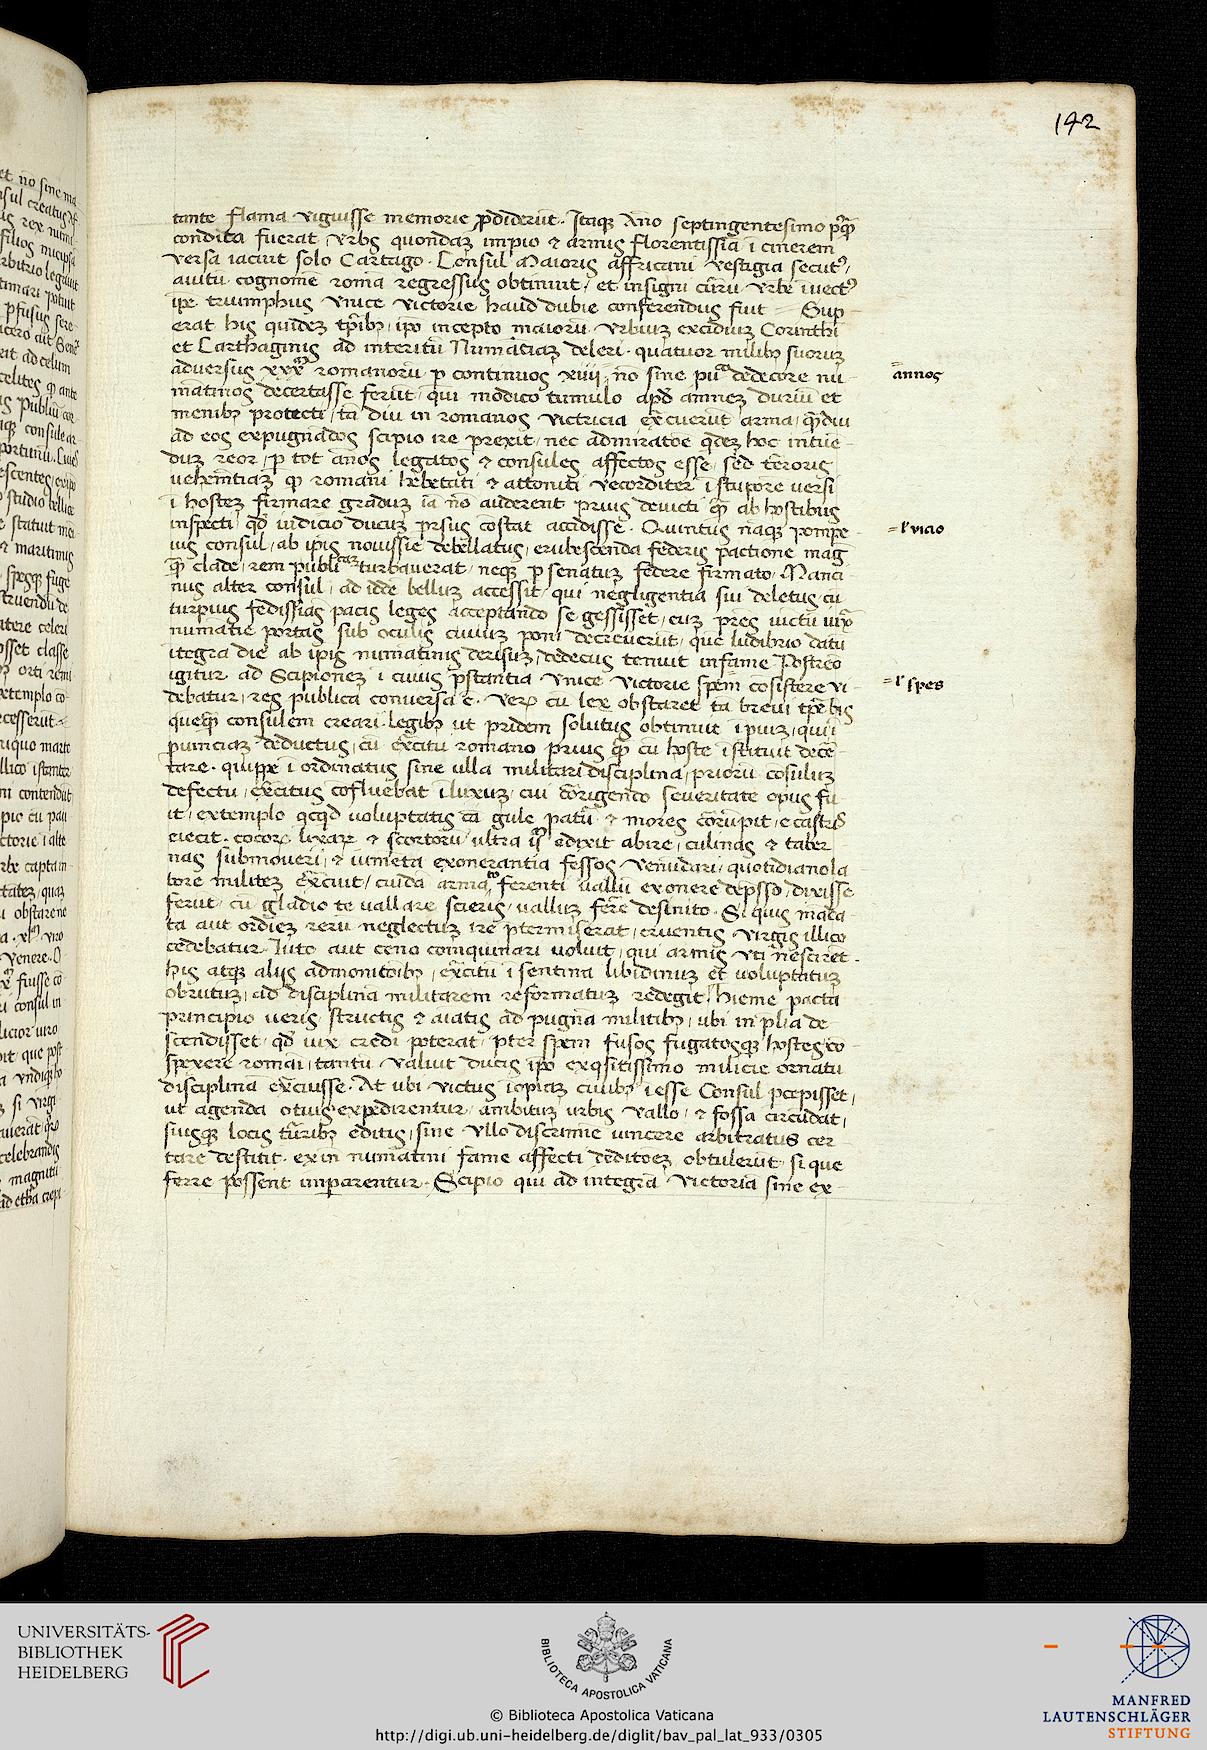 142
tante flama viguisse memorie ꝓdiderūt. Itaqꝫ Año septingentesimo pꝰqꝫ̄
condita fuerat vrbs quondaꝫ impio & armis florentissīa ī cinerem
versa iacuit solo Cartago. Consul Maioris affricani vestigia secutꝰ,
auitū cognomē romā regressus obtinuit, et insigni curru vrbē īuectꝰ
ip̄e triumphus vnice victorie haud dubie conferendus fuit = Sup
erat his quideꝫ tp̄ribꝫ, ip̄o incepto maiorū vrbiuꝫ excidiuꝫ Corinthi
et Carthaginis ad interitū Numātiaꝫ deleri. quatuor milibꝫ suoruꝫ
adversus xxxᵃ romanorū p continuos xiiij, nō sine puᵃ dedecore nu-
mātinos decertasse ferūt, qui modico tumulo apd̄ amneꝫ duriū et
menibꝫ protecti, tā diu in romanos victricia exercuerūt arma, qꝫ̄diu
ad eos expugnādos scipio ire prexit, nec admiratōe qdeꝫ hoc intue-
duꝫ reor, p tot ānos legatos & consules affectos esse, sed terroris
vehemētiaꝫ qꝫ romani hebetati & attoniti vecorditer ī stupore versi
ī hosteꝫ firmare graduꝫ iā nō auderent prius devicti qꝫ̄ ab hostibus
inspecti, qd̄ iudicio ducuꝫ prsus cōstat accidisse. Quintus nāqꝫ pompe-
ius consul, ab ip̄is nouissīe debellatus, erubescenda federis pactione mag
qꝫ̄ clade, rem publicaꝫ turbauerat, neqꝫ p senatuꝫ federe firmato. Manci
nus alter consul, ad idē belluꝫ accessit, qui negligentia sui deletus, cū
turpius fedissīas pacis leges acceptando se gessisset, euꝫ pres̄ victū iuxᵃ
numātie portas sub oculis ciuiuꝫ poni decreuerūt, que ludibrio datū
itegra die ab ip̄is numātinis derisuꝫ, dedecus tenuit infame Postreō
igitur ad Scipioneꝫ ī cuius p̄stantia vnice victorie spem̄ cōsistere vi-
debatur, res publica conversa ē. veꝝ cū lex obstaret tā brevi tp̄re bis
quēqꝫ̄ consulem creari legibꝫ ut pridem solutus obtinuit ip̄iuꝫ, qui ī
ꝓuinciaꝫ deductus, cū exercitu romano prius qꝫ̄ cū hoste īstituit dece-
tare. quippe ī ordinatus sine ulla militari disciplina, priorū cōsuluꝫ
defectu, exercitus cōfluebat ī luxuꝫ, cui corrigendo seueritate opus fu-
it, extemplo qcqd voluptatis cā gule patū & mores corrupit, e castris
eiecit. cocoꝝ lixaꝝ & scortorū ultra ijᵐ edixit abire, culinas & taber-
nas submoueri, & iumēta exonerantia fessos venūdari, quotidiano la
bore militeꝫ exercuit, cuidā arma to ferenti vallū ex onere depsso, dixisse
ferūt, cū gladio te vallare scieris, valluꝫ ferre desinito. Si quis māda-
ta aut ordineꝫ rerū neglectuꝫ ire ptermiserat, cruentis virgis illico
cedebatur. luto aut ceno coinquinari voluit, qui armis vti nesciret.
his atqꝫ alijs admonitōibꝫ, exercitū ī sentina libidinuꝫ et voluptatuꝫ
obrutuꝫ, ad disciplinā militarem reformatuꝫ redegit. hieme pacta
principio veris structis & aīatis ad pugnā militibꝫ, ubi in plia de
scendisset, qd̄ vix credi poterat, pter spem fusos fugatosqꝫ hostes co-
spexere romani, tantū valuit ducis ip̄o exqsitissimo milicie ornatu
disciplina exercuisse. At ubi victus īopiaꝫ ciuibꝫ īesse Consul pcepisset,
ut agenda otius expedirentur, ambituꝫ urbis vallo, & fossa circūdat,
suisqꝫ locis turribꝫ editis, sine vllo discrimīe vincere arbitratus cer-
tare destitit. exin numātini fame affecti deditōeꝫ obtulerūt, si que
ferre possent imparentur. Scipio qui ad integrā victoriā sine ex-
= annos
= l' vicio
= l' spes
UNIVERSITÄTS-
BIBLIOTHEK
HEIDELBERG
BIBLIOTECA APOSTOLICA VATICANA
© Biblioteca Apostolica Vaticana
http://digi.ub.uni-heidelberg.de/diglit/bav_pal_lat_933/0305
MANFRED
LAUTENSCHLÄGER
STIFTUNG